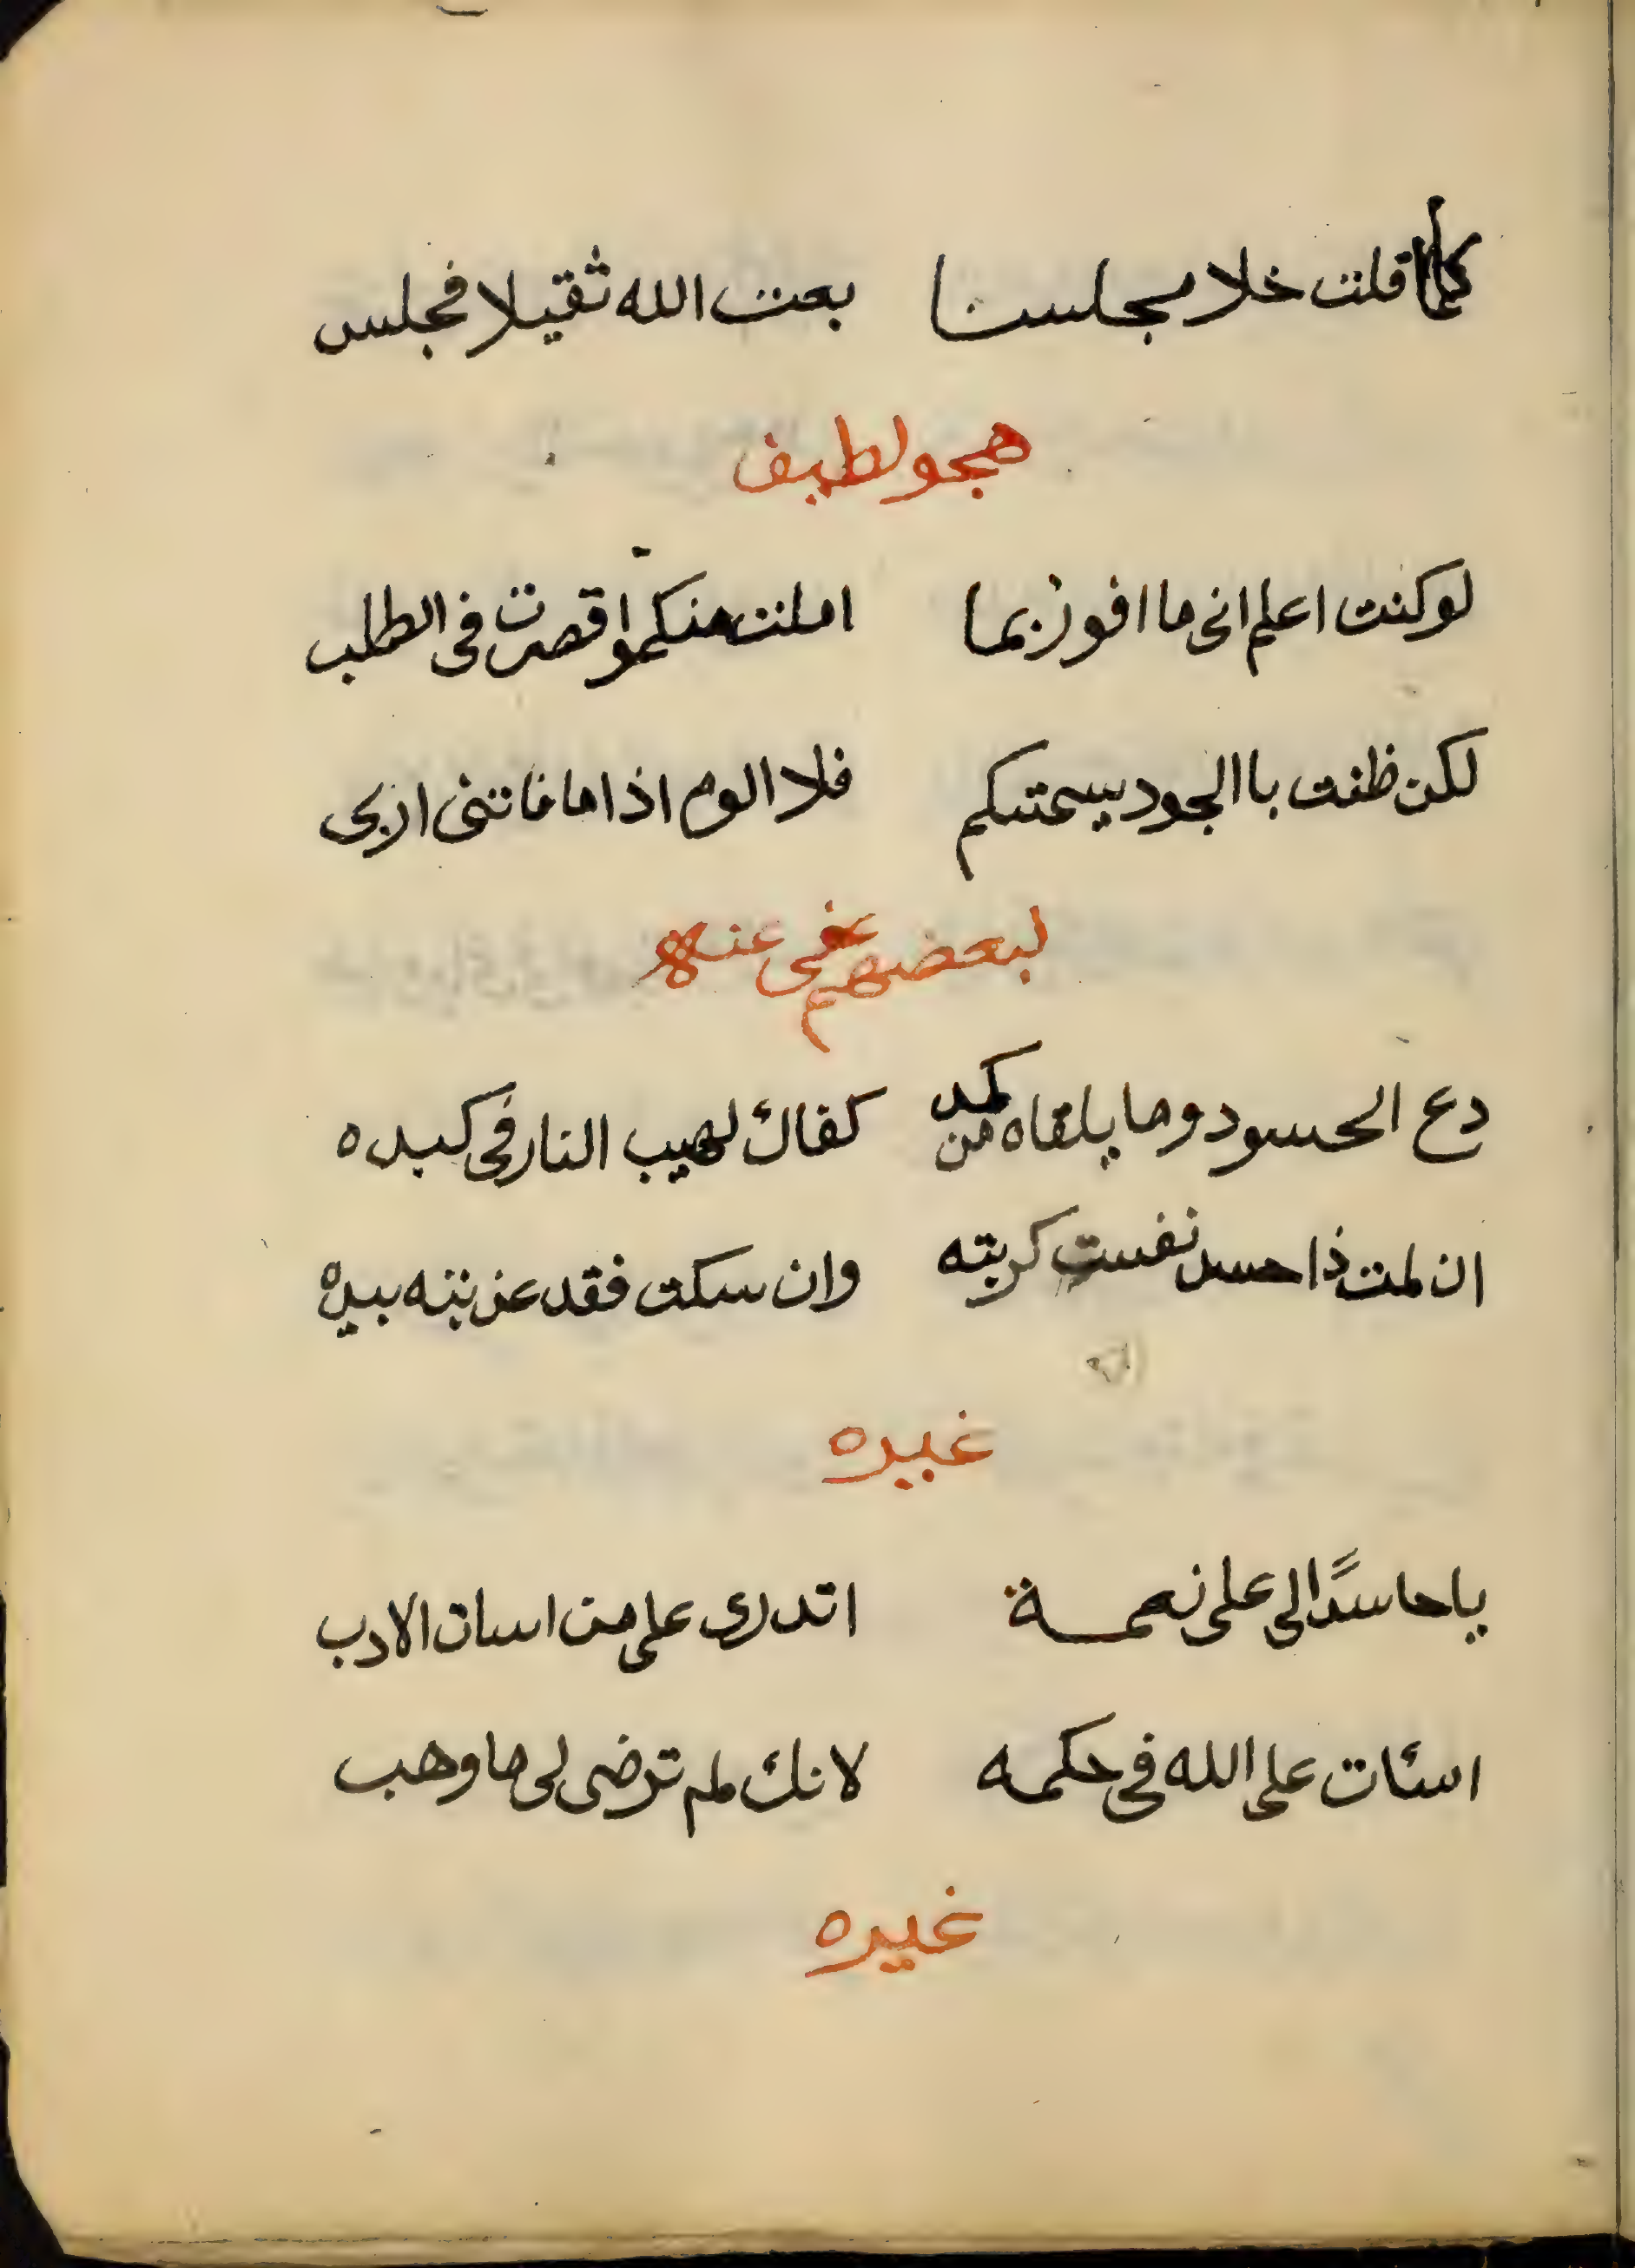 كلما قلت خلا مجلسنا بعث الله ثقيلا فجلس
هجو لطيف
لو كنت اعلم انى ما افوز بما املت منكموا قصرت فى الطلب
لكن ظنت باالجود يسمتكم فلا الوم اذا ما فاتنى اربى
لبعضهم عفى عنه
دع الحسود وما يلقاه من كمد كفاك لهيب النار فى كبده
ان لمت ذا حسد نفست كربته وان سكت فقد عذبته بيده
غيره
يا حاسدًا لى على نعمة اتدرى على من اسات الادب
اسئات على الله فى حكمه لانك لم ترضى لى ما وهب
غيره